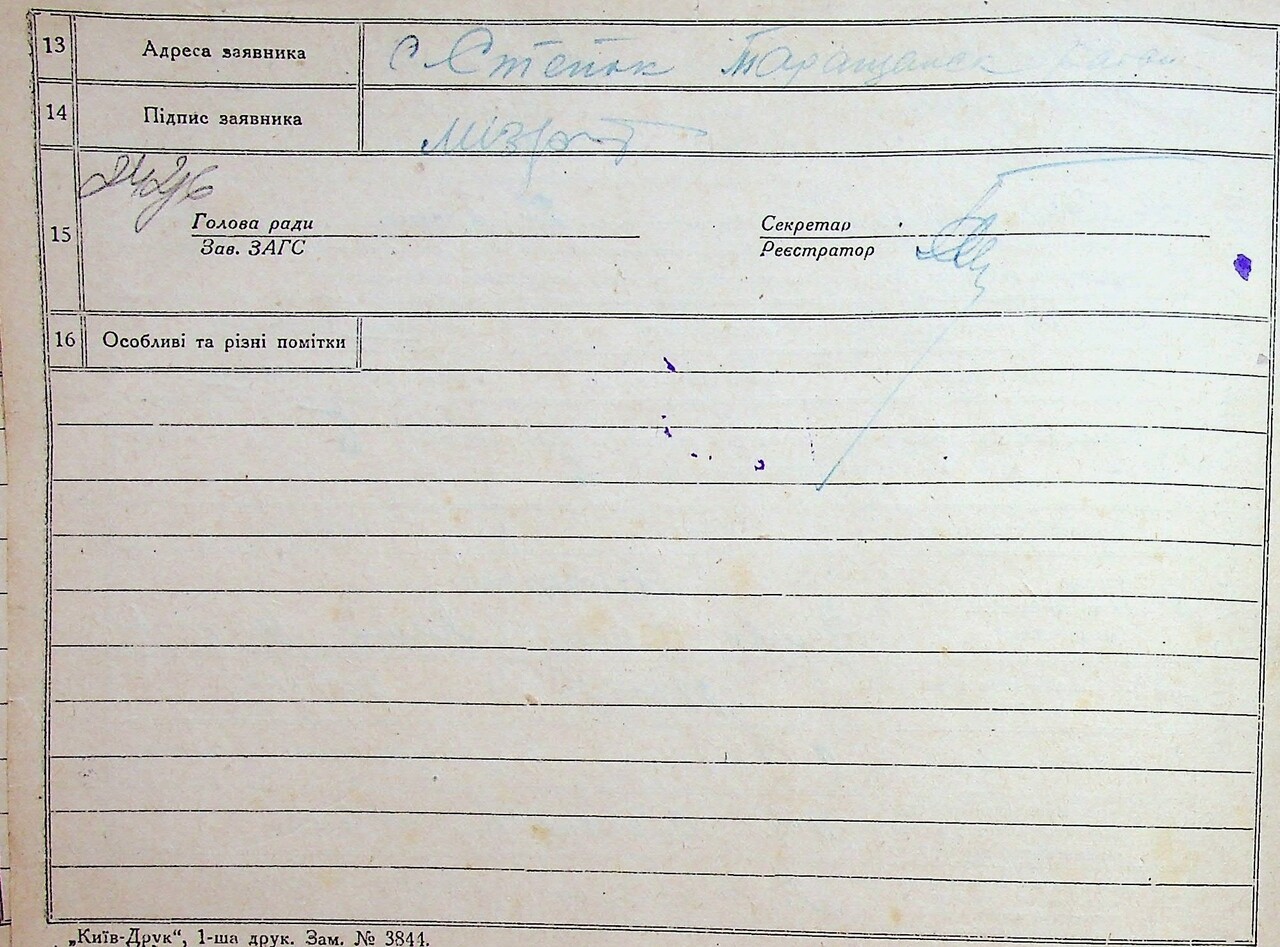 13 Адреса заявника с. Степок Таращанск
14 Підпис заявника
15
Голова ради Секретар
Зав. ЗАГС Реєстратор
16 Особливі та різні помітки
„Київ-Друк“, 1-ша друк. Зам. № 3844.